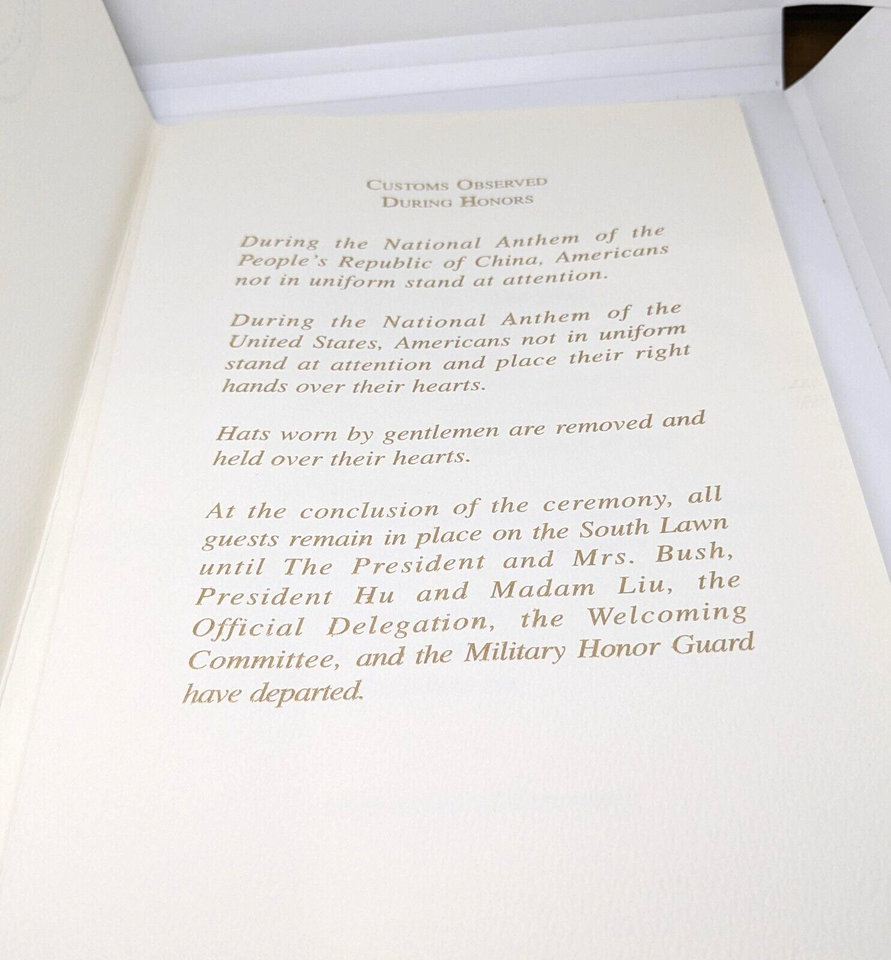 CUSTOMS OBSERVED
DURING HONORS
During the National Anthem of the
People's Republic of China, Americans
not in uniform stand at attention.
During the National Anthem of the
United States, Americans not in uniform
stand at attention and place their right
hands over their hearts.
Hats worn by gentlemen are removed and
held over their hearts.
At the conclusion of the ceremony, all
guests remain in place on the South Lawn
until The President and Mrs. Bush,
President Hu and Madam Liu, the
Official Delegation, the Welcoming
Committee, and the Military Honor Guard
have departed.